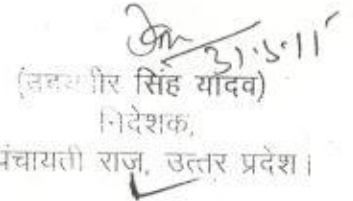 31.5.11
सिंह यादव)
निदेशक,
पंचायती राज, उत्तर प्रदेश।